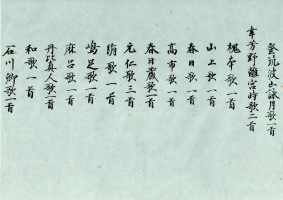 登筑波山詠月歌一首
幸芳野離宮時歌二首
槐本歌一首
山上歌一首
春日歌一首
高市歌一首
春日蔵歌一首
元仁歌三首
絹歌一首
嶋足歌一首
麻呂歌一首
丹比真人歌一首
和歌一首
石川卿歌一首